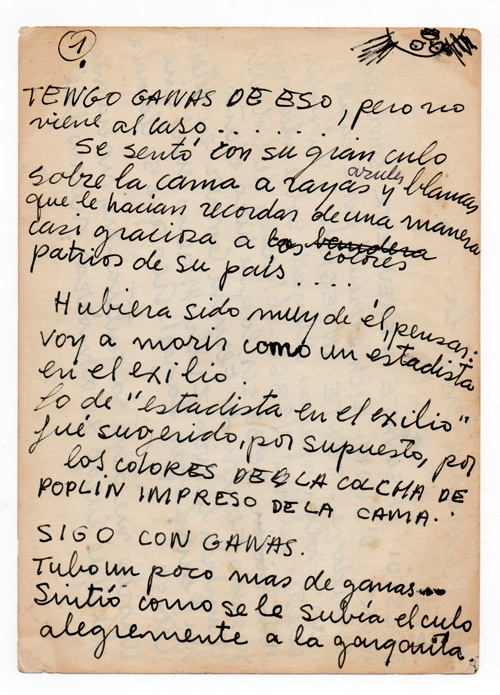 1.
TENGO GANAS DE ESO, pero no
viene al caso........
Se sentó con su gran culo
azules
sobre la cama a rayas y blancas
que le hacían recordar de una manera
casi graciosa a los bandera
colores
patrios de su país....
Hubiera sido muy de él, pensar:
voy a morir como un estadista
en el exilio.
Lo de "estadista en el exilio"
fué sugerido, por supuesto, por
los COLORES DE LA COLCHA DE
POPLIN IMPRESO DE LA CAMA.
SIGO CON GANAS.
Tubo un poco mas de ganas...
Sintió como se le subía el culo
alegremente a la garganta.